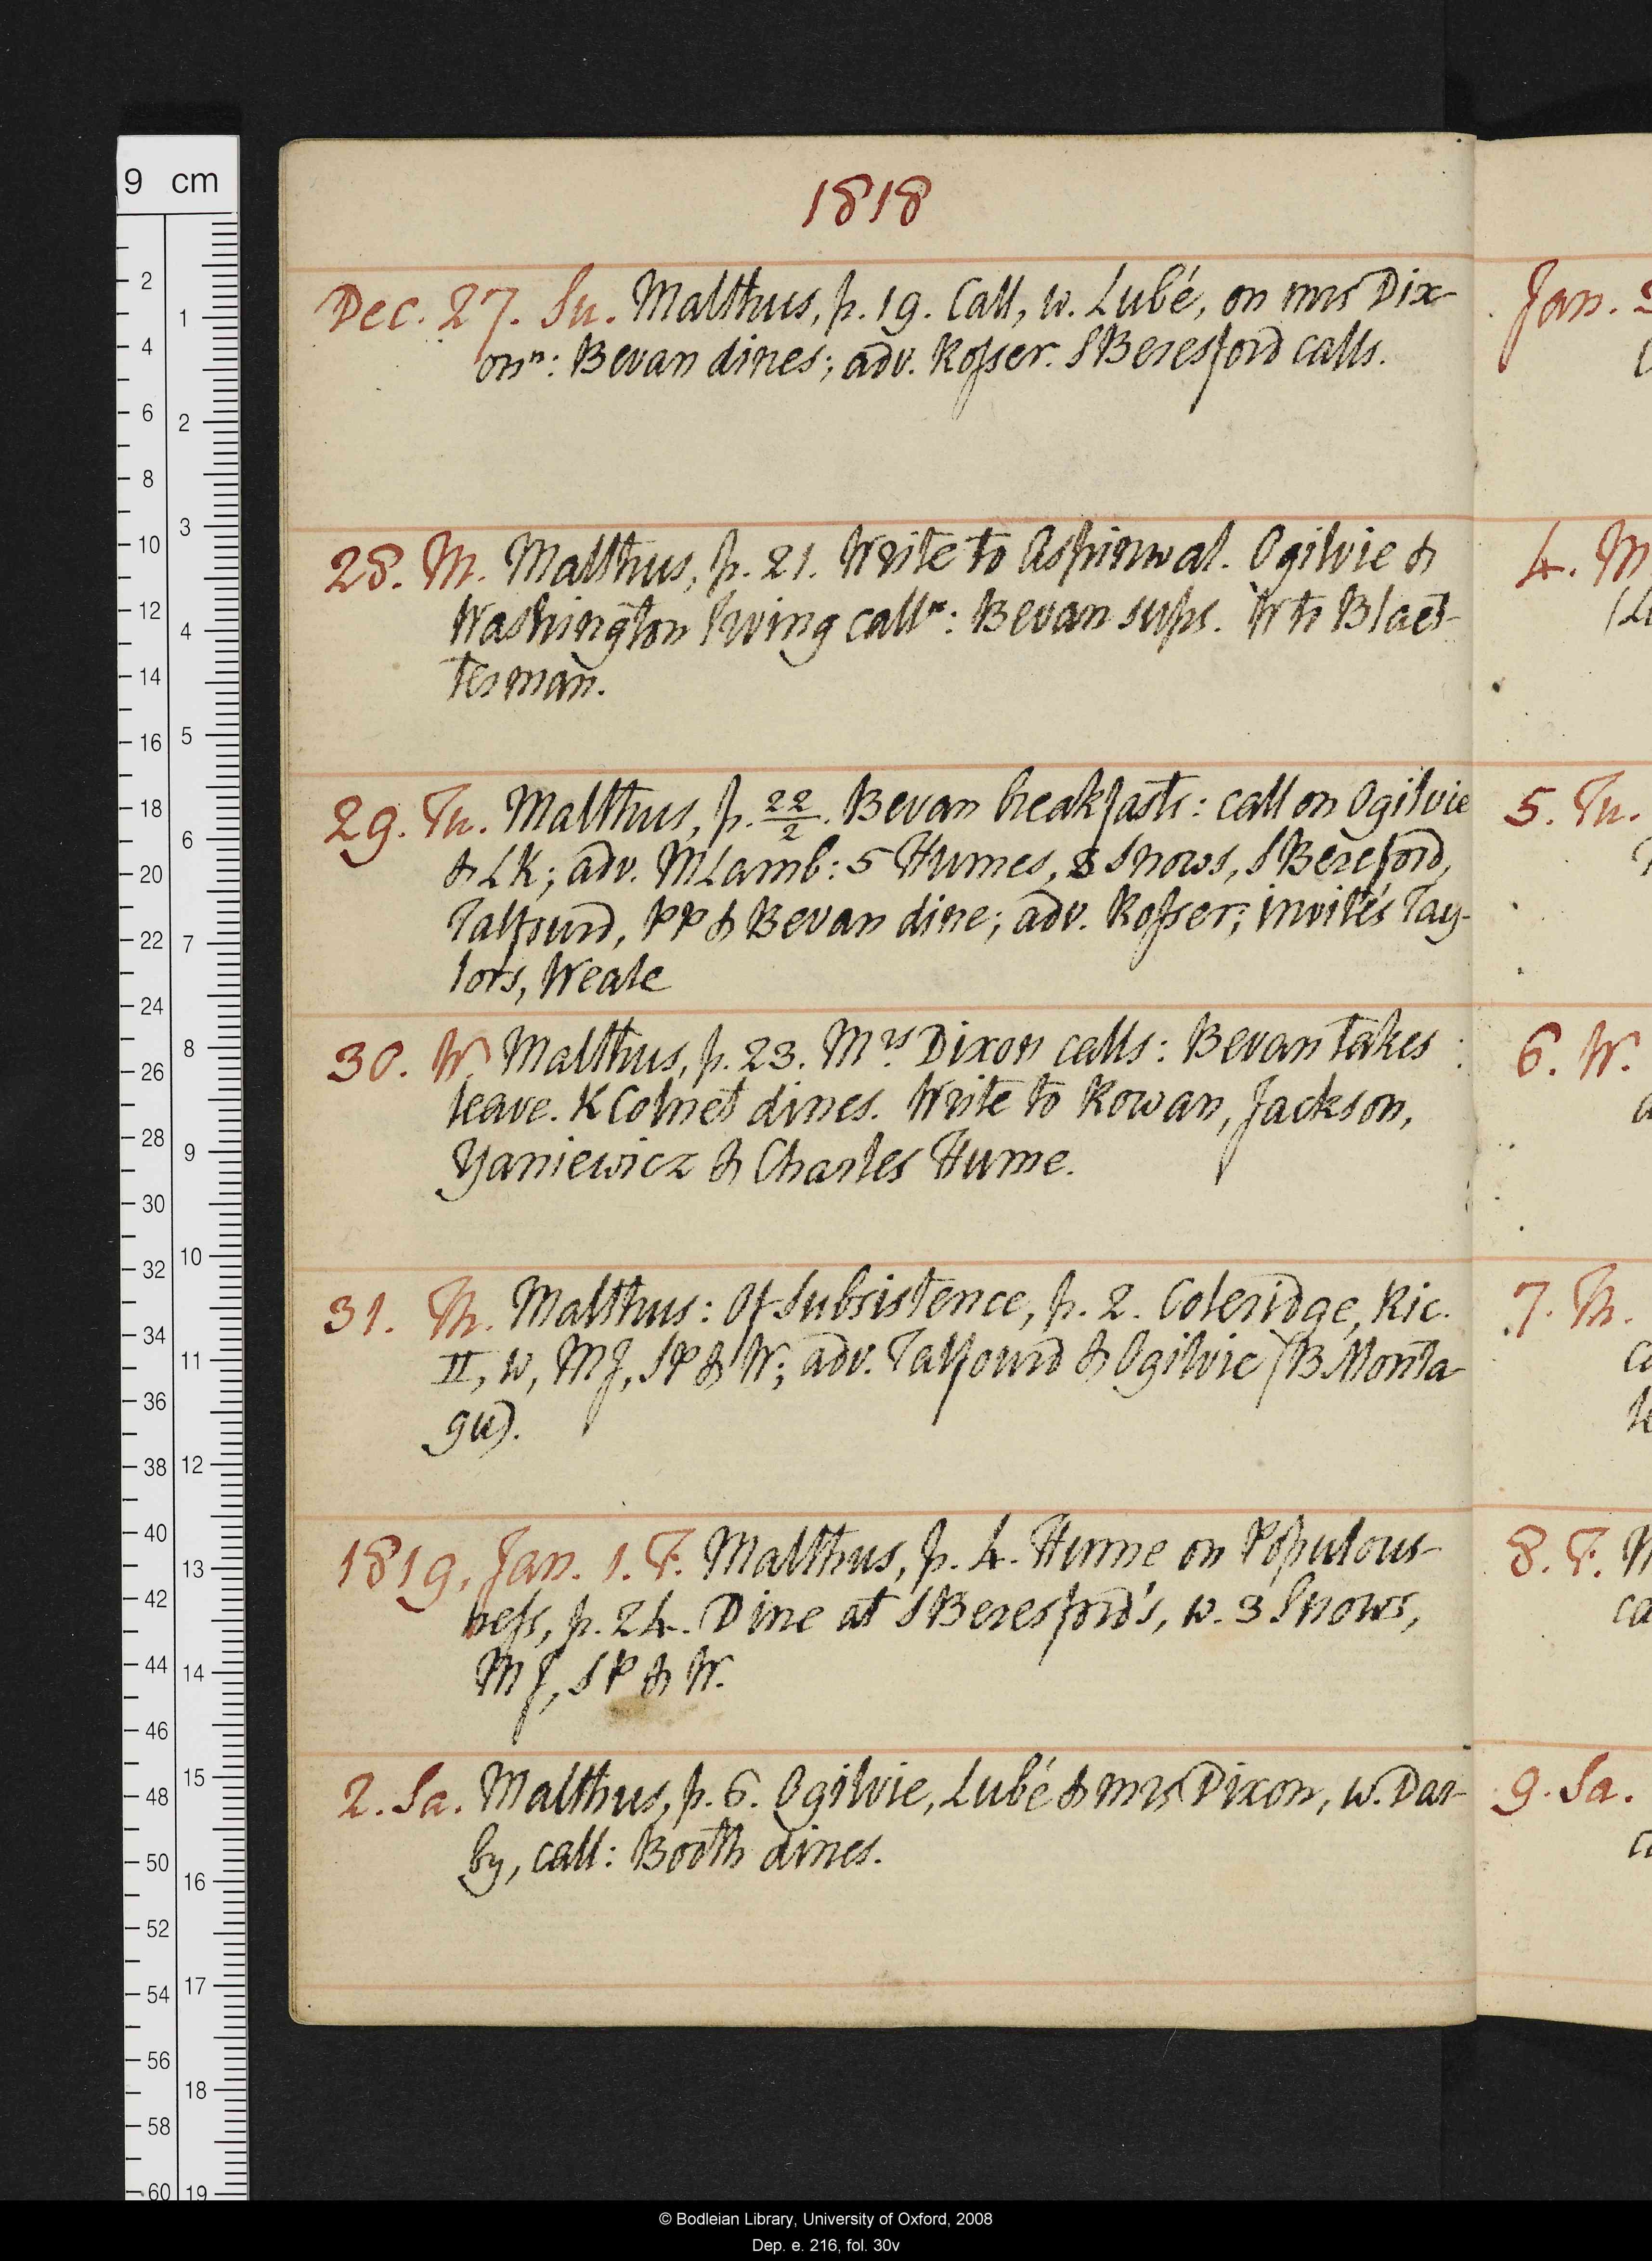 1818
Dec. 27. Su. Malthus, p. 19. Call, w. Lubé, on mrs Dix-
onⁿ: Bevan dines; adv. Rosser. S Beresford calls.
28. M. Malthus, p. 21. Write to Aspinwal. Ogilvie &
Washington Irving callⁿ: Bevan sups. W to Blaet-
terman.
29. Tu. Malthus, p. 22/2. Bevan breakfasts: call on Ogilvie
& LK; adv. M Lamb: 5 Humes, 3 Snows, S Beresford,
Talfourd, PP & Bevan dine; adv. Rosser; invités Tay-
lors, Weale
30. W. Malthus, p. 23. Mrs Dixon calls: Bevan takes
leave. K Colnet dines. Write to Rowan, Jackson,
Yaniewicz & Charles Hume.
31. Th. Malthus: Of Subsistence, p. 2. Coleridge, Ric.
II, w, MJ, SP & W; adv. Talfourd & Ogilvie (B. Monta-
gu).
1819, Jan. 1. F. Malthus, p. 4. Hume on Populous-
ness, p. 24. Dine at S Beresford's, w. 3 Snows,
MJ, SP & W.
2. Sa. Malthus, p. 6. Ogilvie, Lubé & mrs Dixon, w. Dar-
by, call: Booth dines.
Jan.
4. M
5. Tu.
6. W.
7. Th.
8. F. M
ca
9. Sa.
9 cm
2
4
6
8
10
12
14
16
18
20
22
24
26
28
30
32
34
36
38
40
42
44
46
48
50
52
54
56
58
60
1
2
3
4
5
6
7
8
9
10
11
12
13
14
15
16
17
18
19
© Bodleian Library, University of Oxford, 2008
Dep. e. 216, fol. 30v